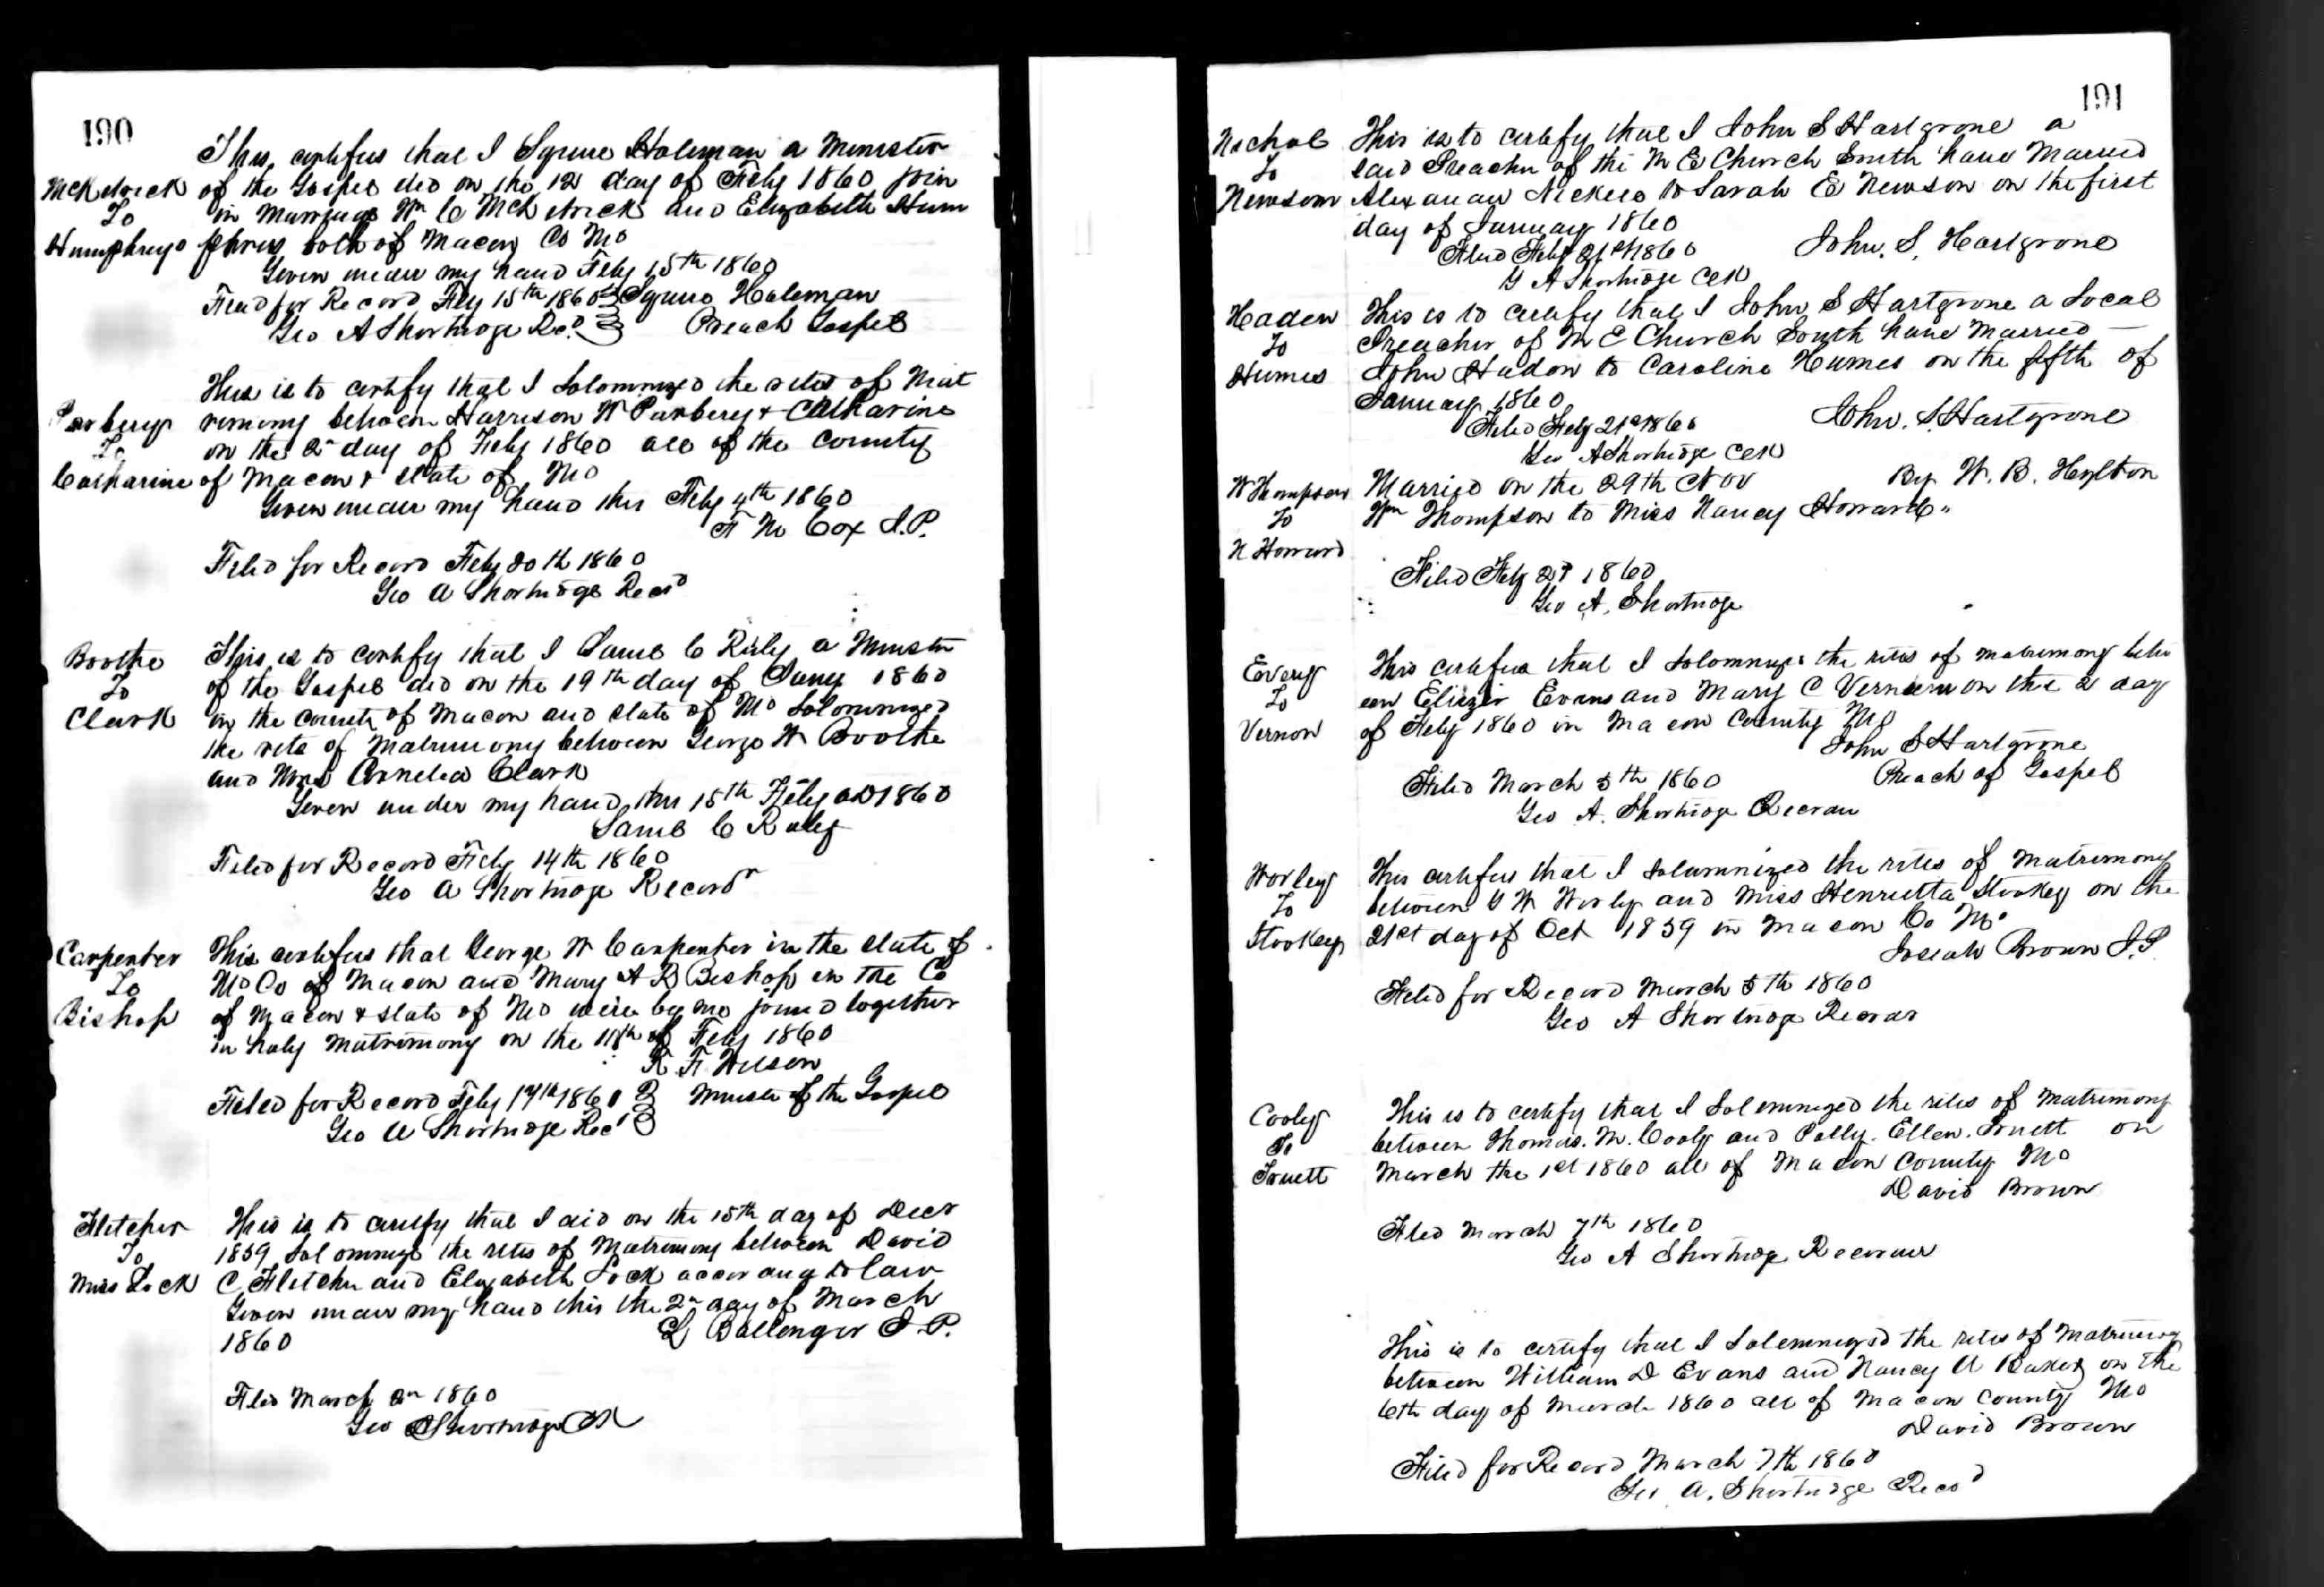 190
This certifies that I Squire Holeman a Minister
McKdrick of the Gospel did on the 12 day of Feby 1860 join
To in Marriage Wm C McKdrick and Elizabeth Hum
Humphreys phreys both of Macon Co Mo
Given under my hand Feby 15th 1860
Filed for Record Feby 15th 1860 Squire Holeman
Geo A Shortridge Recd Preach Gospel
This is to certify that I Solomnized the rites of Mat
rimony between Harrison W & Catharine
To on the 2d day of Feby 1860 all of the County
Catharine of Macon & State of Mo
Given under my hand this Feby 4th 1860
Cox J.P.
Filed for Record Feby 20th 1860
Geo A Shortridge Recd
Boothe This is to certify that I Saml C a Minister
To of the Gospel did on the 19th day of Jany 1860
Clark in the County of Macon and State of Mo Solomnized
the rite of Matrimony between George W Boothe
and Cornelia Clark
Given under my hand this 15th Feby AD 1860
Saml C
Filed for Record Feby 14th 1860
Geo A Shortridge Recordr
Carpenter This certifies that George W Carpenter in the State of
To Mo Co of Macon and Mary A R Bishop in the Co
Bishop of Macon & State of Mo were by me joined together
in holy Matrimony on the of Feby 1860
F Wilson
Filed for Record Feby 17th 1860 Minister of the Gospel
Geo A Shortridge Recd
Fletcher This is to certify that I did on the 15th day of Decr
To 1859 Solomnize the rites of Matrimony between David
Miss Lock C Fletcher and Elizabeth Lock according to law
Given under my hand this the 2n day of March
1860 Ballenger J.P.
Filed March 2n 1860
Geo A Shortridge Clk
191
Nichol This is to certify that I John S Hartgrove a
To Preacher of the M E Church South have Married
Newsom Nickels to Sarah E Newson on the first
day of January 1860
Filed Feby 21st 1860 John. S. Hartgrove
G A Shortridge Clk
Haden This is to certify that I John S Hartgrove a Local
To Preacher of M E Church South have Married
Humes John Hadon to Caroline Humes on the fifth of
January 1860
Filed Feby 21st 1860 John. S. Hartgrove
Geo A Shortridge Clk
W Thompson Married on the 29th Nov By W. B. Hylton
To Wm Thompson to Miss Nancy Howard
N Howard
Filed Feby 1860
Geo A. Shortridge
This certifies that I Solomnize the rites of matrimony betw
To een Evans and Mary C Vernon on the 2 day
Vernon of Feby 1860 in Macon County Mo
John S Hartgrove
Filed March 5th 1860 Preach of Gospel
Geo A. Shortridge
Worley This certifies that I Solumnized the rites of matrimony
To between W Worly and Miss Henrietta Stookey on the
Stookey 21st day of Oct 1859 in Macon Co Mo
Josiah Brown J.P.
Filed for Record March 5th 1860
Geo A Shortridge
Cooly This is to certify that I Solemnized the rites of Matrimony
To between Thomas. M. Cooly and Polly. Ellen. Truett on
Truett March the 1st 1860 all of Macon County Mo
David Brown
Filed March 7th 1860
Geo A Shortridge Recorder
This is to certify that I Solemnized the rites of Matrimony
between William D Evans and Nancy A on the
6th day of March 1860 all of Macon County Mo
David Brown
Filed for Record March 7th 1860
Geo A. Shortridge Recd